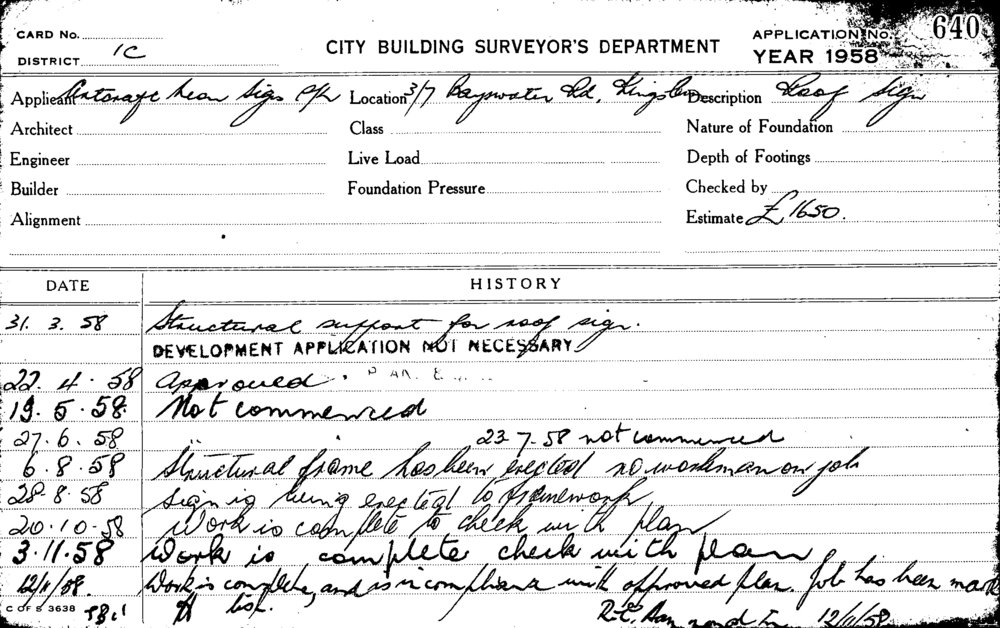 CARD No.
DISTRICT 1C
CITY BUILDING SURVEYOR'S DEPARTMENT
APPLICATION No. 640
YEAR 1958
Applicant Neon Signs P/L Location 3/7 Bayswater Rd, Kings Description Roof Sign
Architect Class Nature of Foundation
Engineer Live Load Depth of Footings
Builder Foundation Pressure Checked by
Alignment Estimate £1650.
DATE HISTORY
31. 3. 58 Structural support for roof sign.
DEVELOPMENT APPLICATION NOT NECESSARY
22. 4. 58 Approved.
19. 5. 58. Not commenced
27. 6. 58 23-7-58 not commenced
6. 8. 58 Structural frame has been erected no workman on job
28. 8. 58 sign is being erected to framework
20. 10. 58 Work is complete to check with plan
3. 11. 58 Work is complete check with plan
12/11/58. Work is complete, and is in compliance with approved plan. Job has been
C OF S 3638 12/11/58